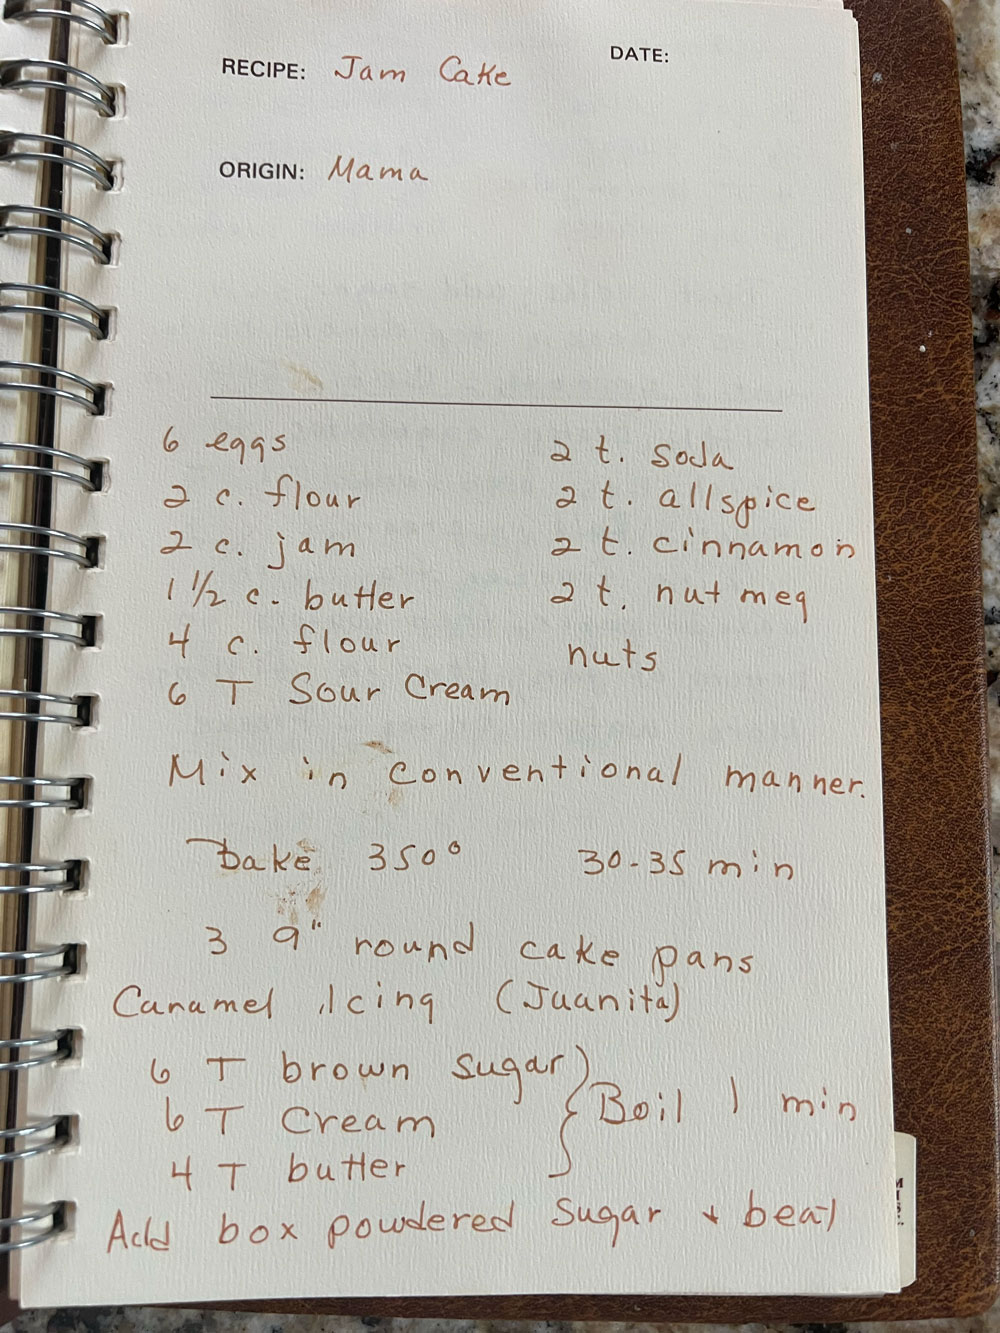 RECIPE: Jam Cake
DATE:
ORIGIN: Mama
6 eggs
2 c. flour
2 c. jam
1 1/2 c. butter
4 c. flour
6 T Sour Cream
2 t. soda
2 t. allspice
2 t. cinnamon
2 t. nutmeg
nuts
Mix in conventional manner.
bake 350° 30-35 min
3 9" round cake pans
Caramel Icing (Juanita)
6 T brown sugar
6 T Cream
4 T butter
} Boil 1 min
Add box powdered sugar + beat